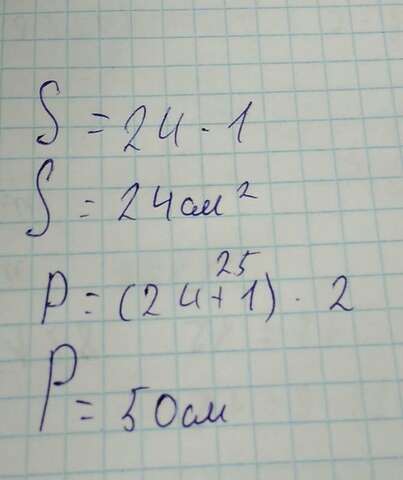 S = 24 · 1
S = 24 см²
25
P = (24+1) · 2
P = 50 см